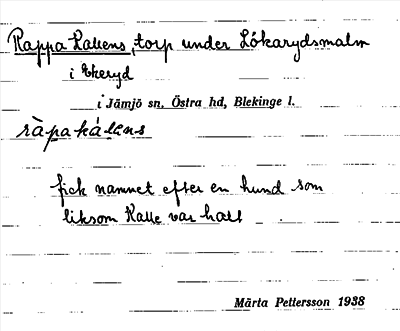 Rappa Kallens, torp under Lökarydsmalm
i Ekeryd
i Jämjö sn, Östra hd, Blekinge l.
ràpakálens
fick namnet efter en hund som
liksom Kalle var halt
Märta Pettersson 1938